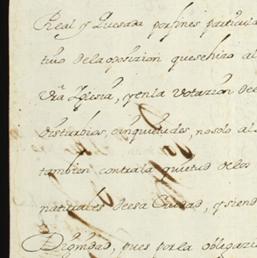 Real y Quesada por fines particula
tivo de la oposizion que se hizo al
Vra Iglesia, y en la votazion de
disturbios, einquietudes, no solo al
tambien contra la quietud de los
naturales de esa Ciudad, y siend
Dignidad, pues por la obligazi